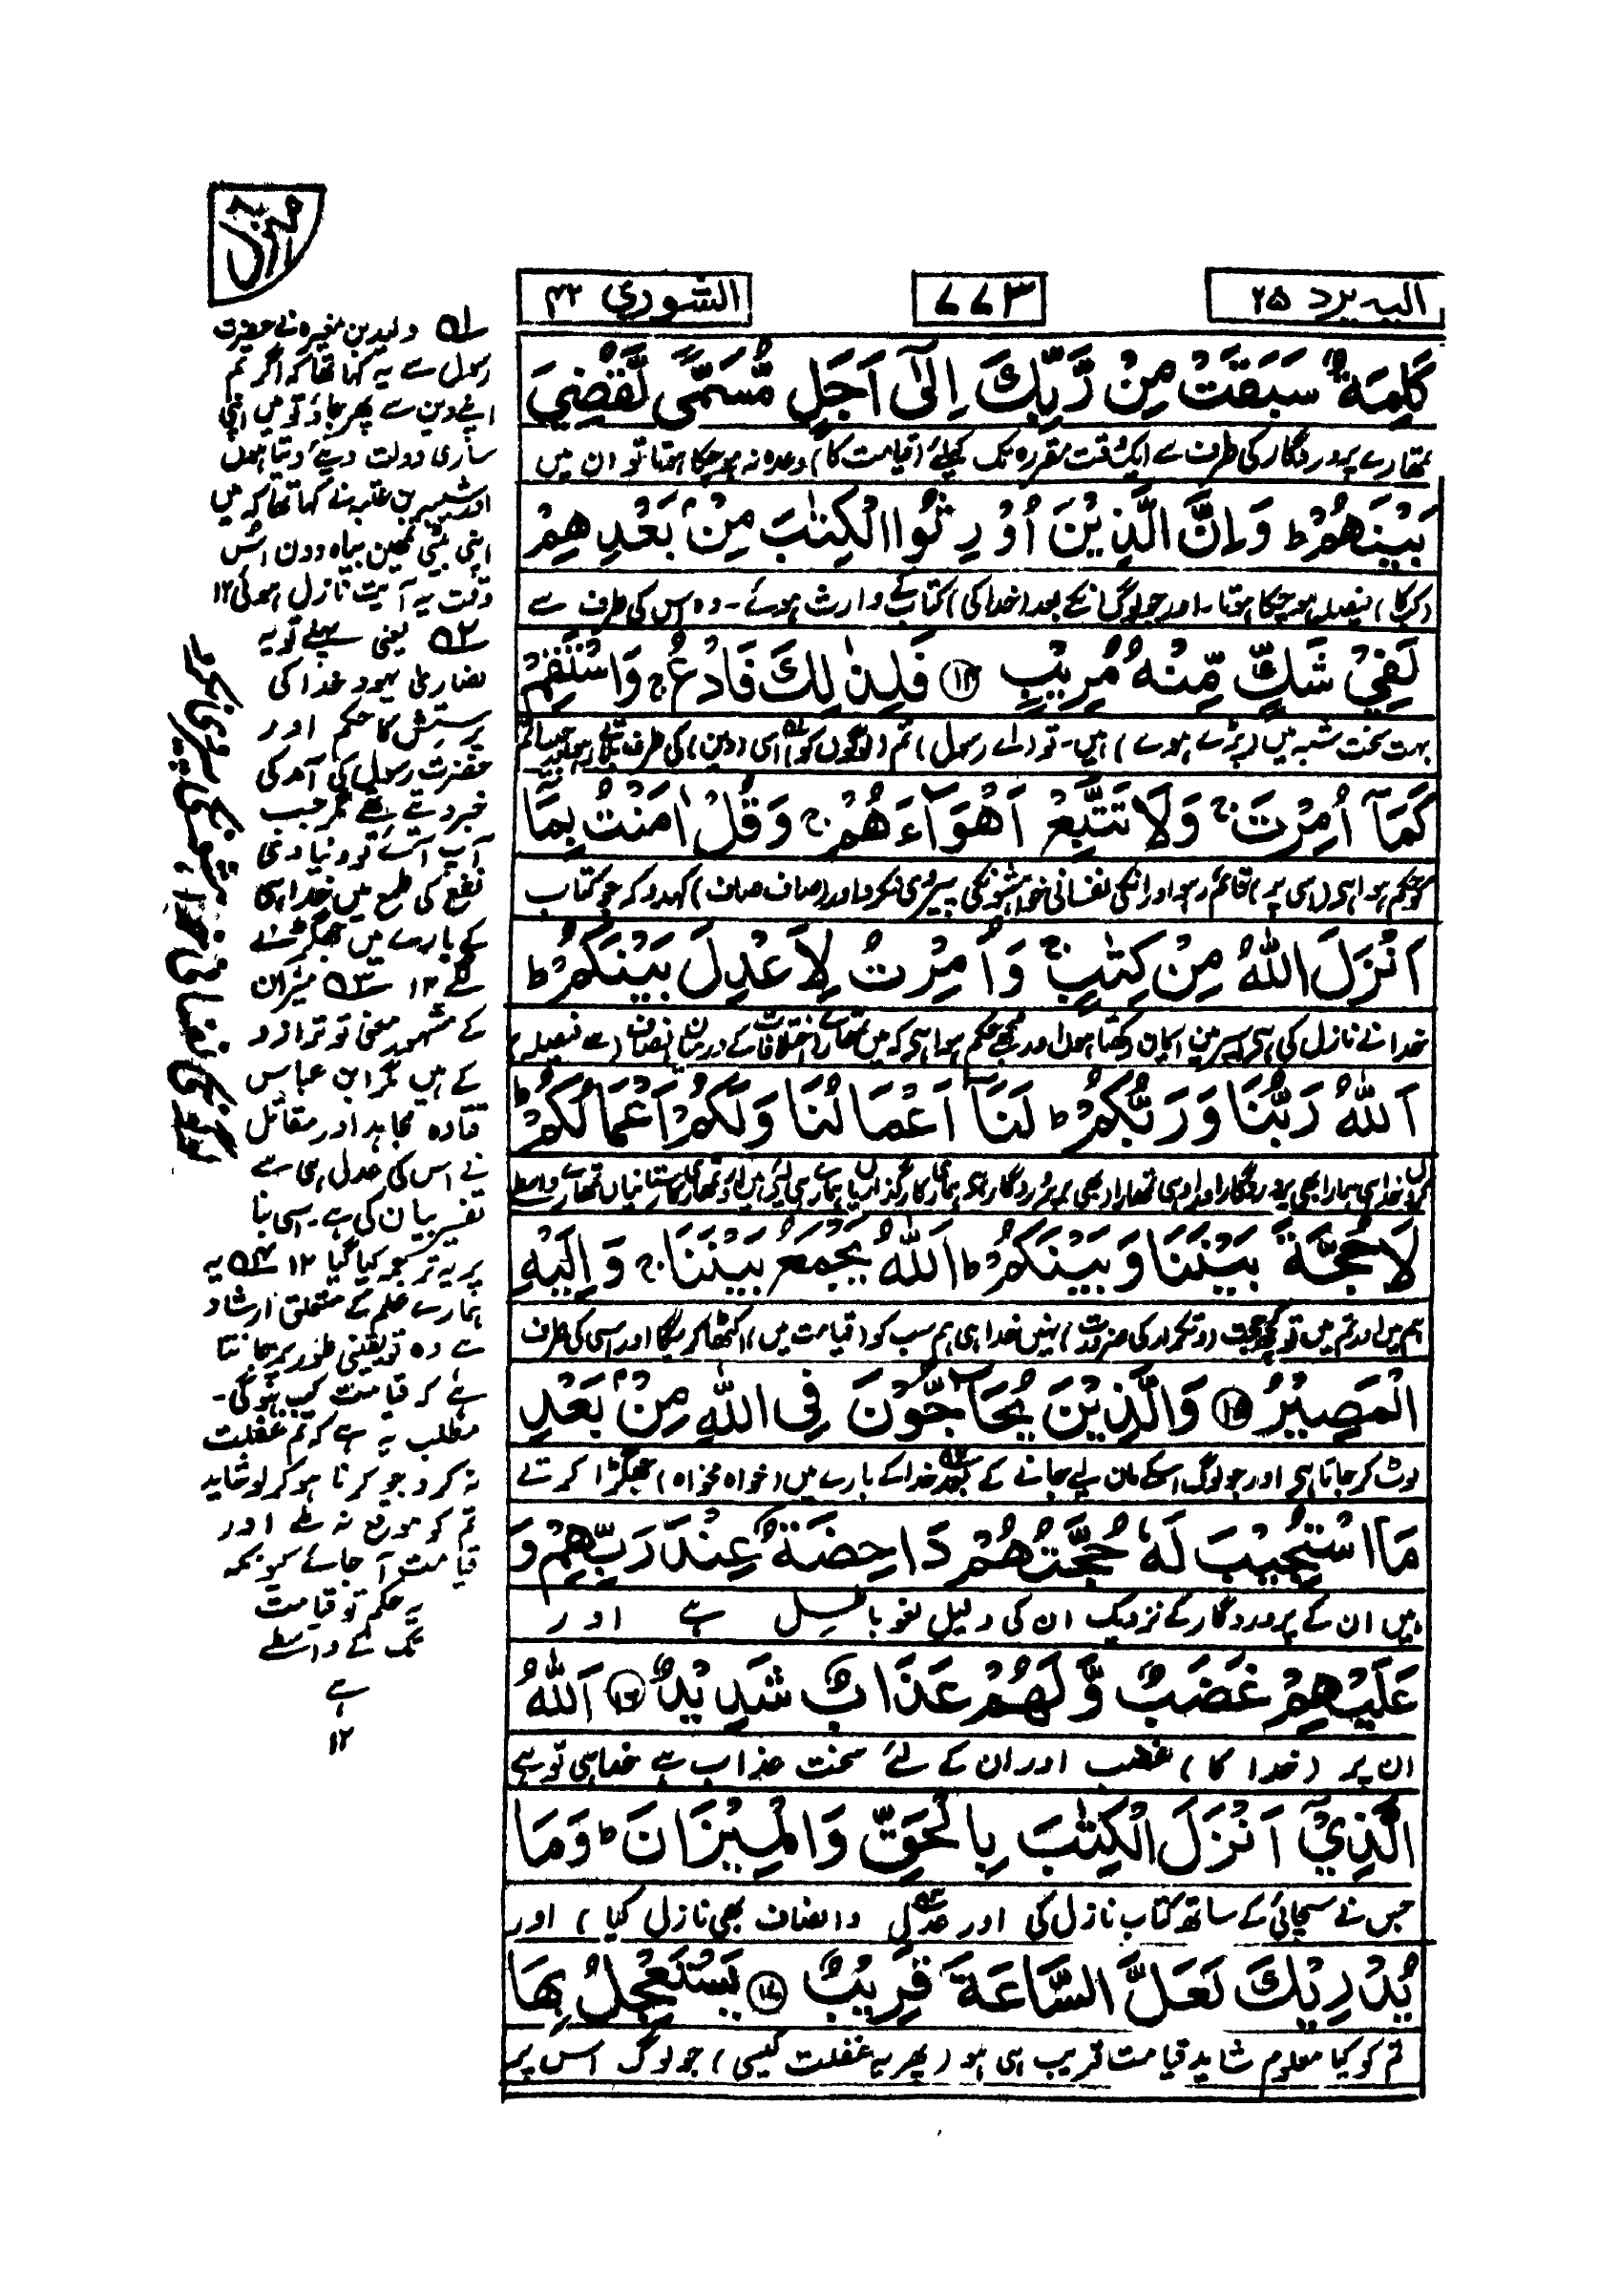 الیہ یرد ۲۵
۷۷۳
الشوری ۴۲
كَلِمَةٌ سَبَقَتْ مِنْ رَّبِّكَ اِلٰٓى اَجَلٍ مُّسَمًّى لَّقُضِيَ
تمھارے پروردگار کی طرف سے ایک وقت مقررہ تک کیلئے (قیامت کا) وعدہ نہ ہو چکا ہوتا تو ان میں
بَيْنَهُمْ ؕ وَاِنَّ الَّذِيْنَ اُوْرِثُوا الْكِتٰبَ مِنْۢ بَعْدِهِمْ
(کب کا) فیصلہ ہو چکا ہوتا۔ اور جو لوگ انکے بعد (خدا کی) کتاب کے وارث ہوئے۔ وہ اس کی طرف سے
لَفِيْ شَكٍّ مِّنْهُ مُرِيْبٍ ⑭ فَلِذٰلِكَ فَادْعُ ۚ وَاسْتَقِمْ
بہت سخت شبہ میں (پڑے ہوئے) ہیں۔ تو (اے رسول) تم (لوگوں کو) اسی (دین) کی طرف بلاتے رہو اور جیسا تم
كَمَآ اُمِرْتَ ۚ وَلَا تَتَّبِعْ اَهْوَآءَهُمْ ۚ وَقُلْ اٰمَنْتُ بِمَآ
کو حکم ہوا ہی (اسی پر) قائم رہو اور انکی نفسانی خواہشونکی پیروی نکرو اور (صاف صاف) کہدو کہ جو کتاب
اَنْزَلَ اللّٰهُ مِنْ كِتٰبٍ ۚ وَاُمِرْتُ لِاَعْدِلَ بَيْنَكُمْ ؕ
خدا نے نازل کی ہی اسپر میں ایمان رکھتا ہوں اور مجھے حکم ہوا ہی کہ میں تمھارے اختلافات کے درمیان انصاف (سے فیصلہ)
اَللّٰهُ رَبُّنَا وَرَبُّكُمْ ؕ لَنَآ اَعْمَالُنَا وَلَكُمْ اَعْمَالُكُمْ ؕ
کروں خدا ہی ہمارا بھی پروردگار اور وہی تمھارا بھی پروردگار ہے ہماری کارگذاریاں ہمارے ہی لئے ہیں اور تمھاری کارستانیاں تمھارے واسطے
لَا حُجَّةَ بَيْنَنَا وَبَيْنَكُمْ ؕ اَللّٰهُ يَجْمَعُ بَيْنَنَا ۚ وَاِلَيْهِ
ہم میں اور تم میں تو کچھ حجت (و تکرار کی ضرورت) نہیں خدا ہی ہم سب کو (قیامت میں) اکٹھا کریگا اور اسی کی طرف
الْمَصِيْرُ ⑮ وَالَّذِيْنَ يُحَآجُّوْنَ فِى اللّٰهِ مِنْۢ بَعْدِ
لوٹ کر جانا ہی اور جو لوگ اسکے مان لیے جانے کے بعد خدا کے بارے میں (خواہ مخواہ) جھگڑا کرتے
مَا اسْتُجِيْبَ لَهٗ حُجَّتُهُمْ دَاحِضَةٌ عِنْدَ رَبِّهِمْ وَ
ہیں ان کے پروردگار کے نزدیک ان کی دلیل لغو باطل ہے اور
عَلَيْهِمْ غَضَبٌ وَّلَهُمْ عَذَابٌ شَدِيْدٌ ⑯ اَللّٰهُ
ان پر (خدا کا) غضب اور ان کے لئے سخت عذاب ہے خدا ہی تو ہے
الَّذِيْٓ اَنْزَلَ الْكِتٰبَ بِالْحَقِّ وَالْمِيْزَانَ ؕ وَمَا
جس نے سچائی کے ساتھ کتاب نازل کی اور عدل (و انصاف بھی نازل کیا) اور
يُدْرِيْكَ لَعَلَّ السَّاعَةَ قَرِيْبٌ ⑰ يَسْتَعْجِلُ بِهَا
تم کو کیا معلوم شاید قیامت قریب ہی ہو (پھر یہ غفلت کیسی) جو لوگ اس پر
منزل
۱ ولید بن مغیرہ نے حضرت
رسول سے یہ کہا تھا کہ اگر تم
اپنے دین سے پھر جاؤ تو میں اپنی
ساری دولت دیئے دیتا ہوں
اور شیبہ بن عتبہ نے کہا تھا کہ میں
اپنی بیٹی تمھیں بیاہ دوں اس
وقت یہ آیت نازل ہوئی ۱۲
۲ یعنی پہلے تو یہ
نصاریٰ یہود خدا کی
پرستش کا حکم اور
حضرت رسول کی آمد کی
خبر دیتے تھے مگر جب
آپ آئے تو دنیاوی
نفع کی طمع میں خدا ہی
کے بارے میں جھگڑنے
لگے ۱۲ ۳ میزان
کے مشہور معنی تو ترازو
کے ہیں مگر ابن عباس
قتادہ مجاہد اور مقاتل
نے اس کی عدل ہی سے
تفسیر بیان کی ہے۔ اسی بنا
پر یہ ترجمہ کیا گیا ۱۲ ۴ یہ
ہمارے علم کے متعلق ارشاد
ہے وہ تو یقینی طور پر جانتا
ہے کہ قیامت کب ہوگی۔
مطلب یہ ہے کہ تم غفلت
نہ کرو جو کرنا ہو کر لو شاید
تم کو موقع نہ ملے اور
قیامت آ جائے کیونکہ
یہ حکم تو قیامت
تک کے واسطے
ہے
۱۲